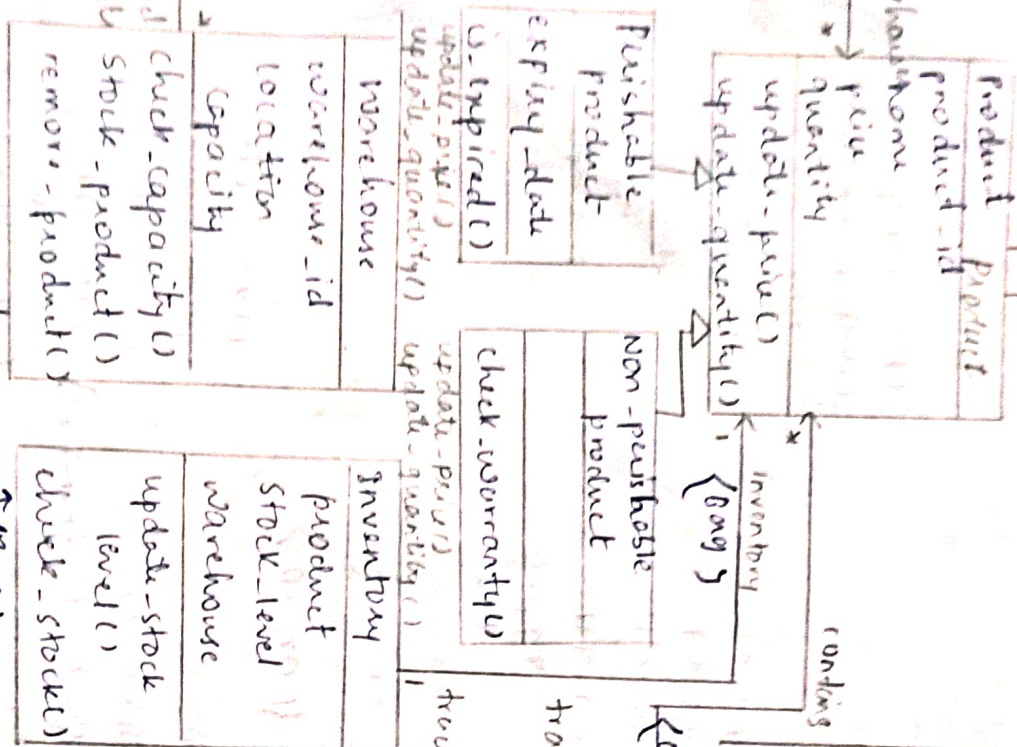 Product
product
product_id
name
price
quantity
update_price()
update_quantity()
*
*
1
inventory
{bag}
contains
Perishable
product
expiry_date
is_expired()
update_price()
update_quantity()
Non-perishable
product
check_warranty()
update_price()
update_quantity()
Warehouse
warehouse_id
location
capacity
check_capacity()
stock_product()
remove_product()
*
Inventory
product
stock_level
warehouse
update_stock
level()
check_stock()
1